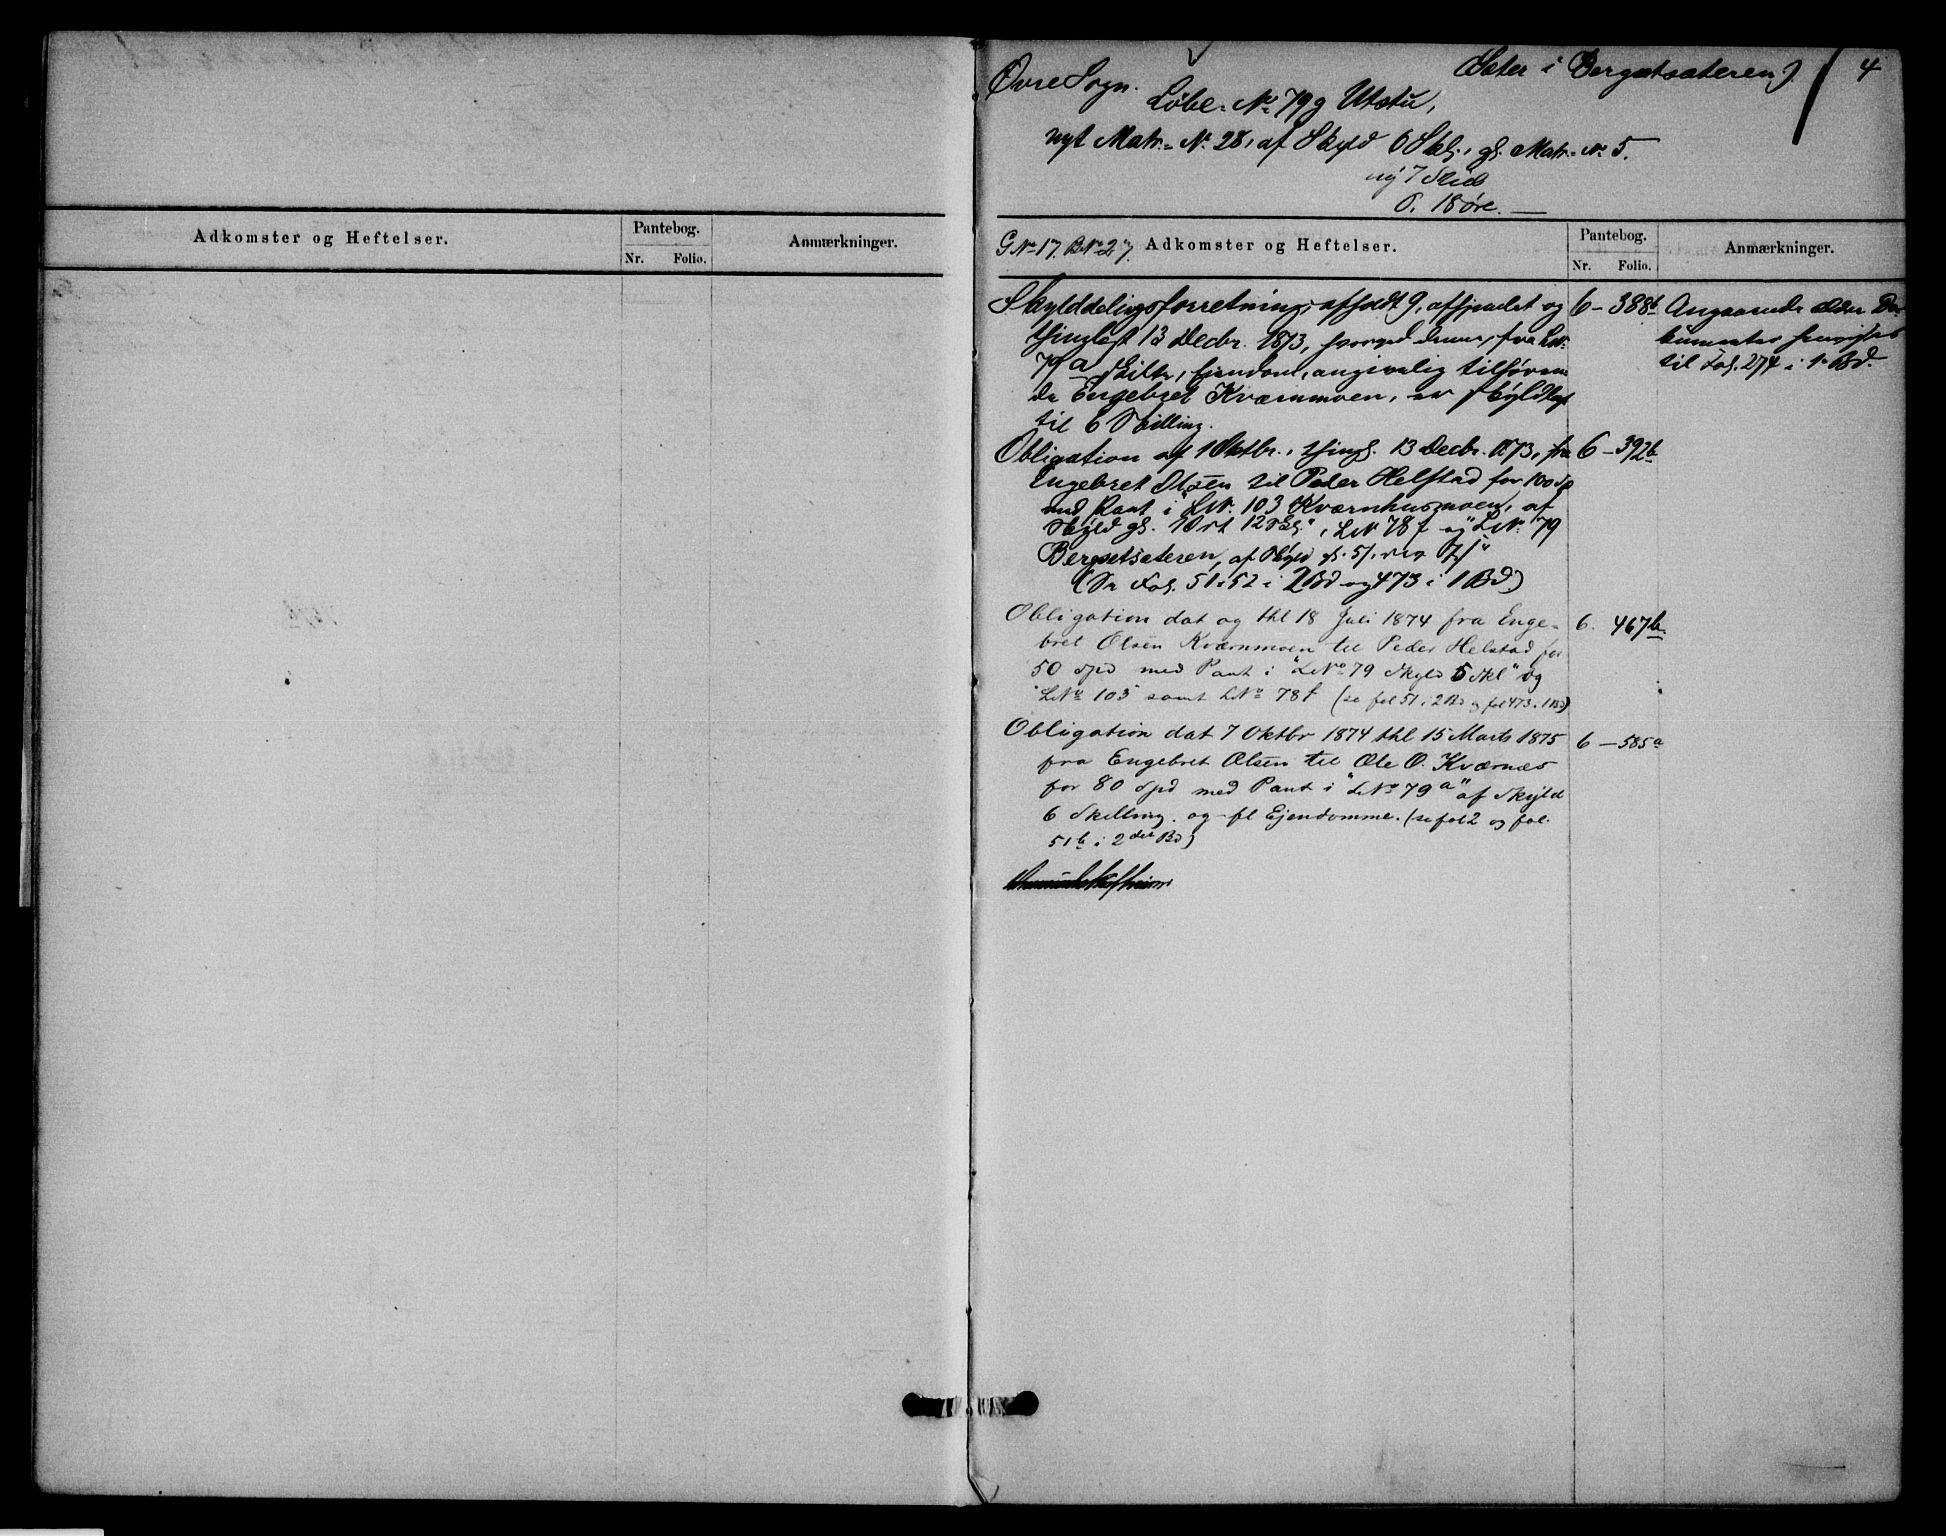 Adkomster og Heftelser.
Pantebog.
Nr. Folio.
Anmærkninger.
Øvre Sogn.
Sæter i Bergsætsæteren)
4
Løbe-No 79g Utstu,
nyt Matr.-No 28, af Skyld 6 Skl., gl. Matr.-No 5.
ny 7 Skild
0. 18 Øre.
G No 17. B No 27. Adkomster og Heftelser.
Pantebog.
Nr. Folio.
Anmærkninger.
Skylddelingsforretning, afholdt 9, afhjemlet og
thinglæst 13 Decbr. 1873, hvorved denne, fra L.N.
79a skilte, Eiendom, angivelig tilhøren
de Engebret Kværnmoen, er skyldlagt
til 6 Skilling.
6 - 388b
Angaaende ældre Do-
kumenter henvises
til Fol. 274 i 1. Bd.
Obligation af 1 Oktbr., thingl. 13 Decbr. 1873, fra
Engebret Olsen til Peder Helstad for 100 Sp
med Pant i "LN. 103 Kværnhusmoen, af
Skyld gl. 1 Ort 12 Skl.", LN 78f og "LN. 79
Bergsetsæteren, af Skyld gl. 5/, 7/"
(Se Fol. 51 i 52 i 2 Bd og 473 i 1 Bd.)
6 - 392b
Obligation dat og thl 18 Juli 1874 fra Enge-
bret Olsen Kværnmoen til Peder Helstad for
50 Spd med Pant i "LNo 79 Skyld 5 Skl" og
"LNo 103" samt LNo 78f (se fol 51 i 2 Bd og fol 473 i 1 Bd)
6. 467b.
Obligation dat 7 Oktbr 1874 thl 15 Marts 1875
fra Engebret Olsen til Ole O. Kværnæs
for 80 Spd med Pant i "LNo 79a" af Skyld
6 Skilling. og fl Ejendomme. (se fol 2 og fol.
51b i 2det Bd)
6 - 585a